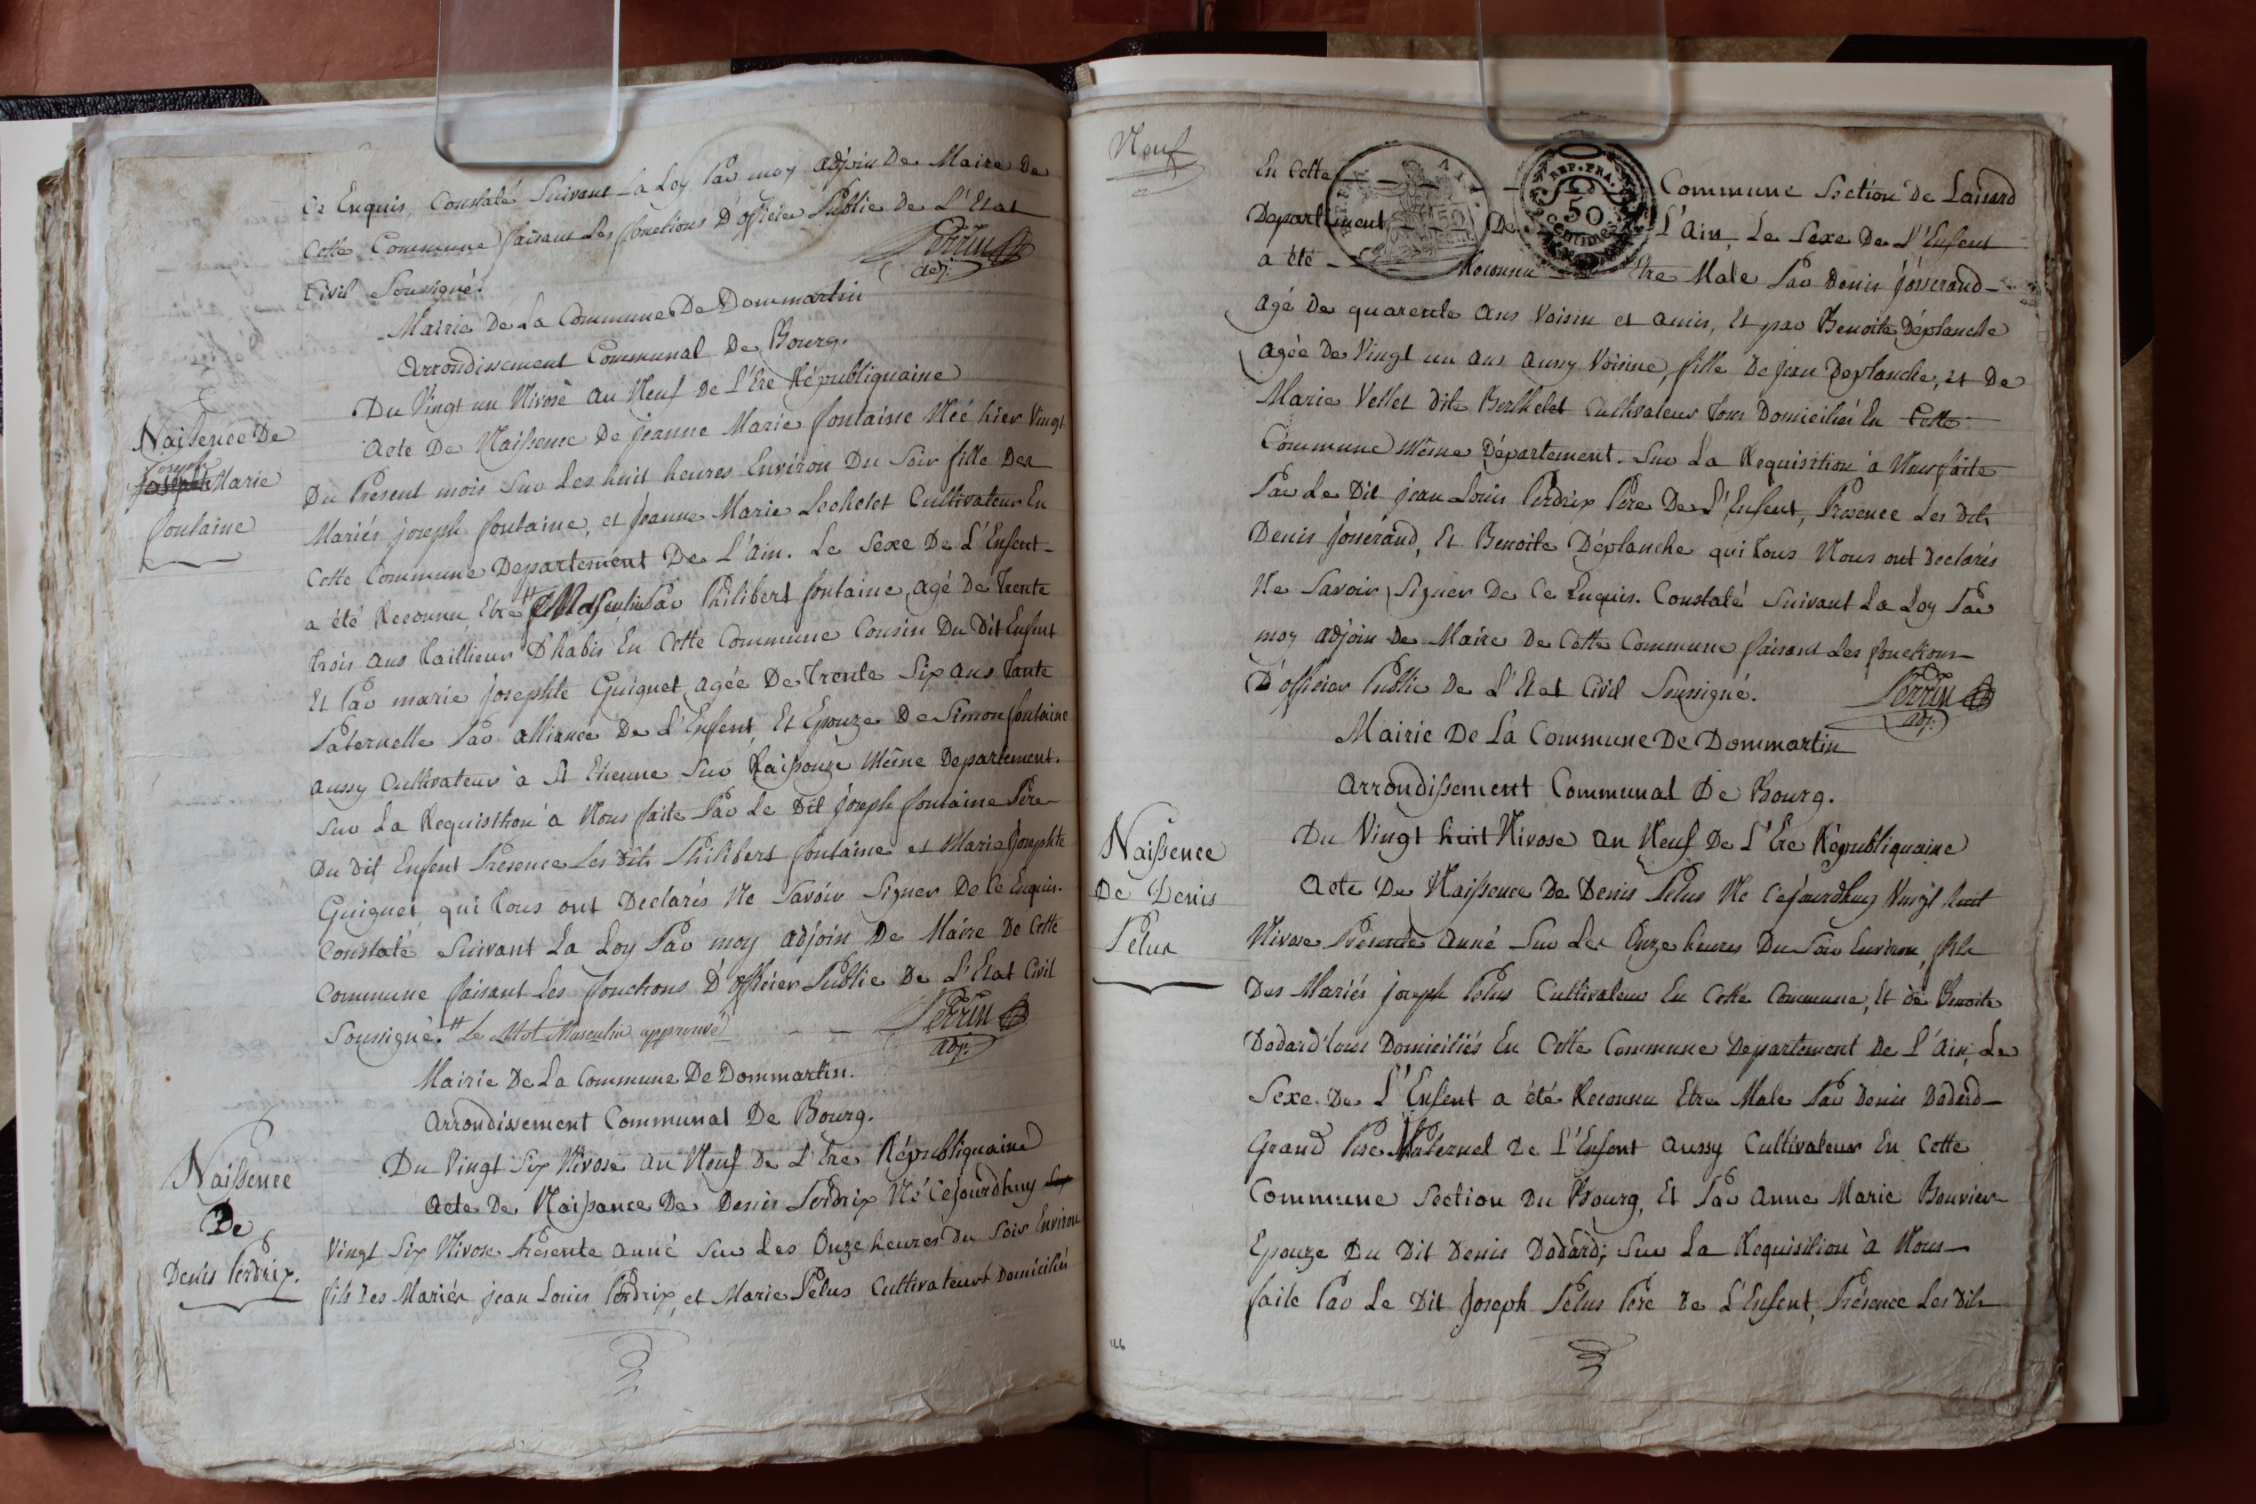 Ce Enquis, Constaté Suivant La Loy Par moy adjoin De Maire De
Cette Commune faisant Les fonctions D'officier Public de L'Etat
Civil Soussigné.
Perrin
adj.
Mairie De La Commune De Dommartin
Arrondissement Communal De Bourg.
Du Vingt un Nivose au Neuf de L'Ere Républiquaine
Naissence De
Joseph Marie
fontaine
acte De Naissence De jeanne Marie fontaine Née hier Vingt
Du Présent mois Sur Les huit heures Environ Du Soir fille Des
Mariés joseph fontaine, et jeanne Marie Lechelet Cultivateur En
Cette Commune Departement De L'Ain. Le Sexe De L'Enfent
a été Reconnu Etre # Masculin Par Philibert fontaine agé De trente
trois ans taillieur D'habis En Cette Commune Cousin Du Dit Enfent
Et Par marie josephte Guiguet agée De Trente Six ans tante
Paternelle Par alliance De L'Enfent, Et Epouze De Simon fontaine
aussy Cultivateur à St Etienne Sur Raissouze Même Departement.
Sur La Requisition à Nous faite Par Le Dit joseph fontaine Pere
Du Dit Enfent Présence Les Dits Philibert fontaine et Marie josephte
Guiguet qui tous ont Declarés Ne Savoir Signer De Ce Enquis.
Constaté Suivant La Loy Par moy adjoin De Maire De Cette
Commune faisant Les fonctions D'officier Public De L'Etat Civil
Soussigné. # Le Mot Masculin approuvé
Perrin
adj.
Mairie De La Commune De Dommartin.
Arrondissement Communal De Bourg.
Du Vingt Six Nivose au Neuf De L'Ere Républiquaine
Naissence
De
Denis Perdrix.
Acte De Naissance De Denis Perdrix Né Cejourdhuy
Vingt Six Nivose Présente anné Sur Les Onze heures Du Soir Environ
fils Des Mariés jean Louis Perdrix, et Marie Pelus Cultivateurs Domiciliés
Neuf
En Cette Commune Section De Laisard
Departement De L'Ain, Le Sexe De L'Enfent
REP. FRA.
50
Centimes
a été Reconnu Etre Male Par Denis josserand
agé De quarente ans Voisin et amis, Et par Benoite Déplanche
agée De Vingt un ans aussy Voisine, fille De jean Deplanche, et De
Marie Vellet dite Berthelet Cultivateur tous Domiciliés En Cette
Commune même Département. Sur La Requisition à Nous faite
Par Le Dit jean Louis Perdrix Pere De L'Enfent, Presence Les Dits
Denis josserand, Et Benoite Déplanche qui tous Nous ont Declarés
Ne Savoir Signer De Ce Enquis. Constaté Suivant La Loy Par
moy adjoin De Maire De Cette Commune faisant Les fonctions
D'officier Public De L'Etat Civil Soussigné.
Perrin
adj.
Mairie De La Commune De Dommartin
Arrondissement Communal De Bourg.
Du Vingt huit Nivose an Neuf De L'Ere Républiquaine
Naissence
De Denis
Pelus
Acte De Naissence De Denis Pelus Né Cejourdhuy Vingt huit
Nivose Présente anné Sur Les Onze heures Du Soir Environ, fils
Des Mariés joseph Pelus Cultivateur En Cette Commune, Et de Benoite
Dodard tous Domiciliés En Cette Commune Departement De L'Ain, Le
Sexe De L'Enfent a été Reconnu Etre Male Par Denis Dodard
Grand Pere Maternel De L'Enfent aussy Cultivateur En Cette
Commune Section Du Bourg, Et Par Anne Marie Bouvier
Epouze Du Dit Denis Dodard; Sur La Requisition à Nous
faite Par Le Dit Joseph Pelus Pere De L'Enfent, Présence Les Dits